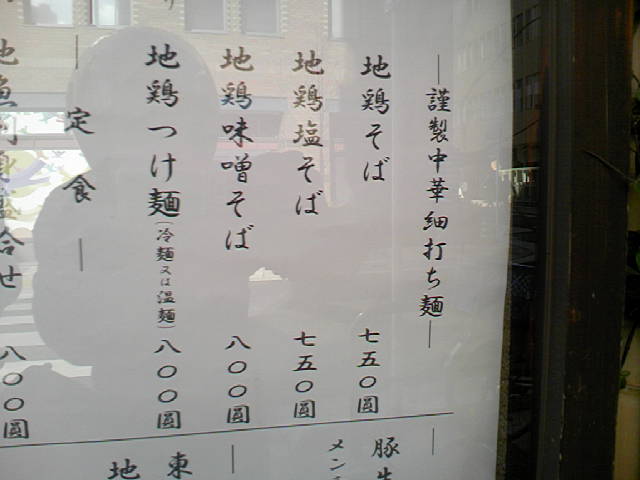 ―謹製中華細打ち麺―
地鶏そば 七五〇圓
地鶏塩そば 七五〇圓
地鶏味噌そば 八〇〇圓
地鶏つけ麺（冷麺又は温麺）八〇〇圓
―定食―
地魚刺身盛合せ 八〇〇圓
豚生
メン
東
地